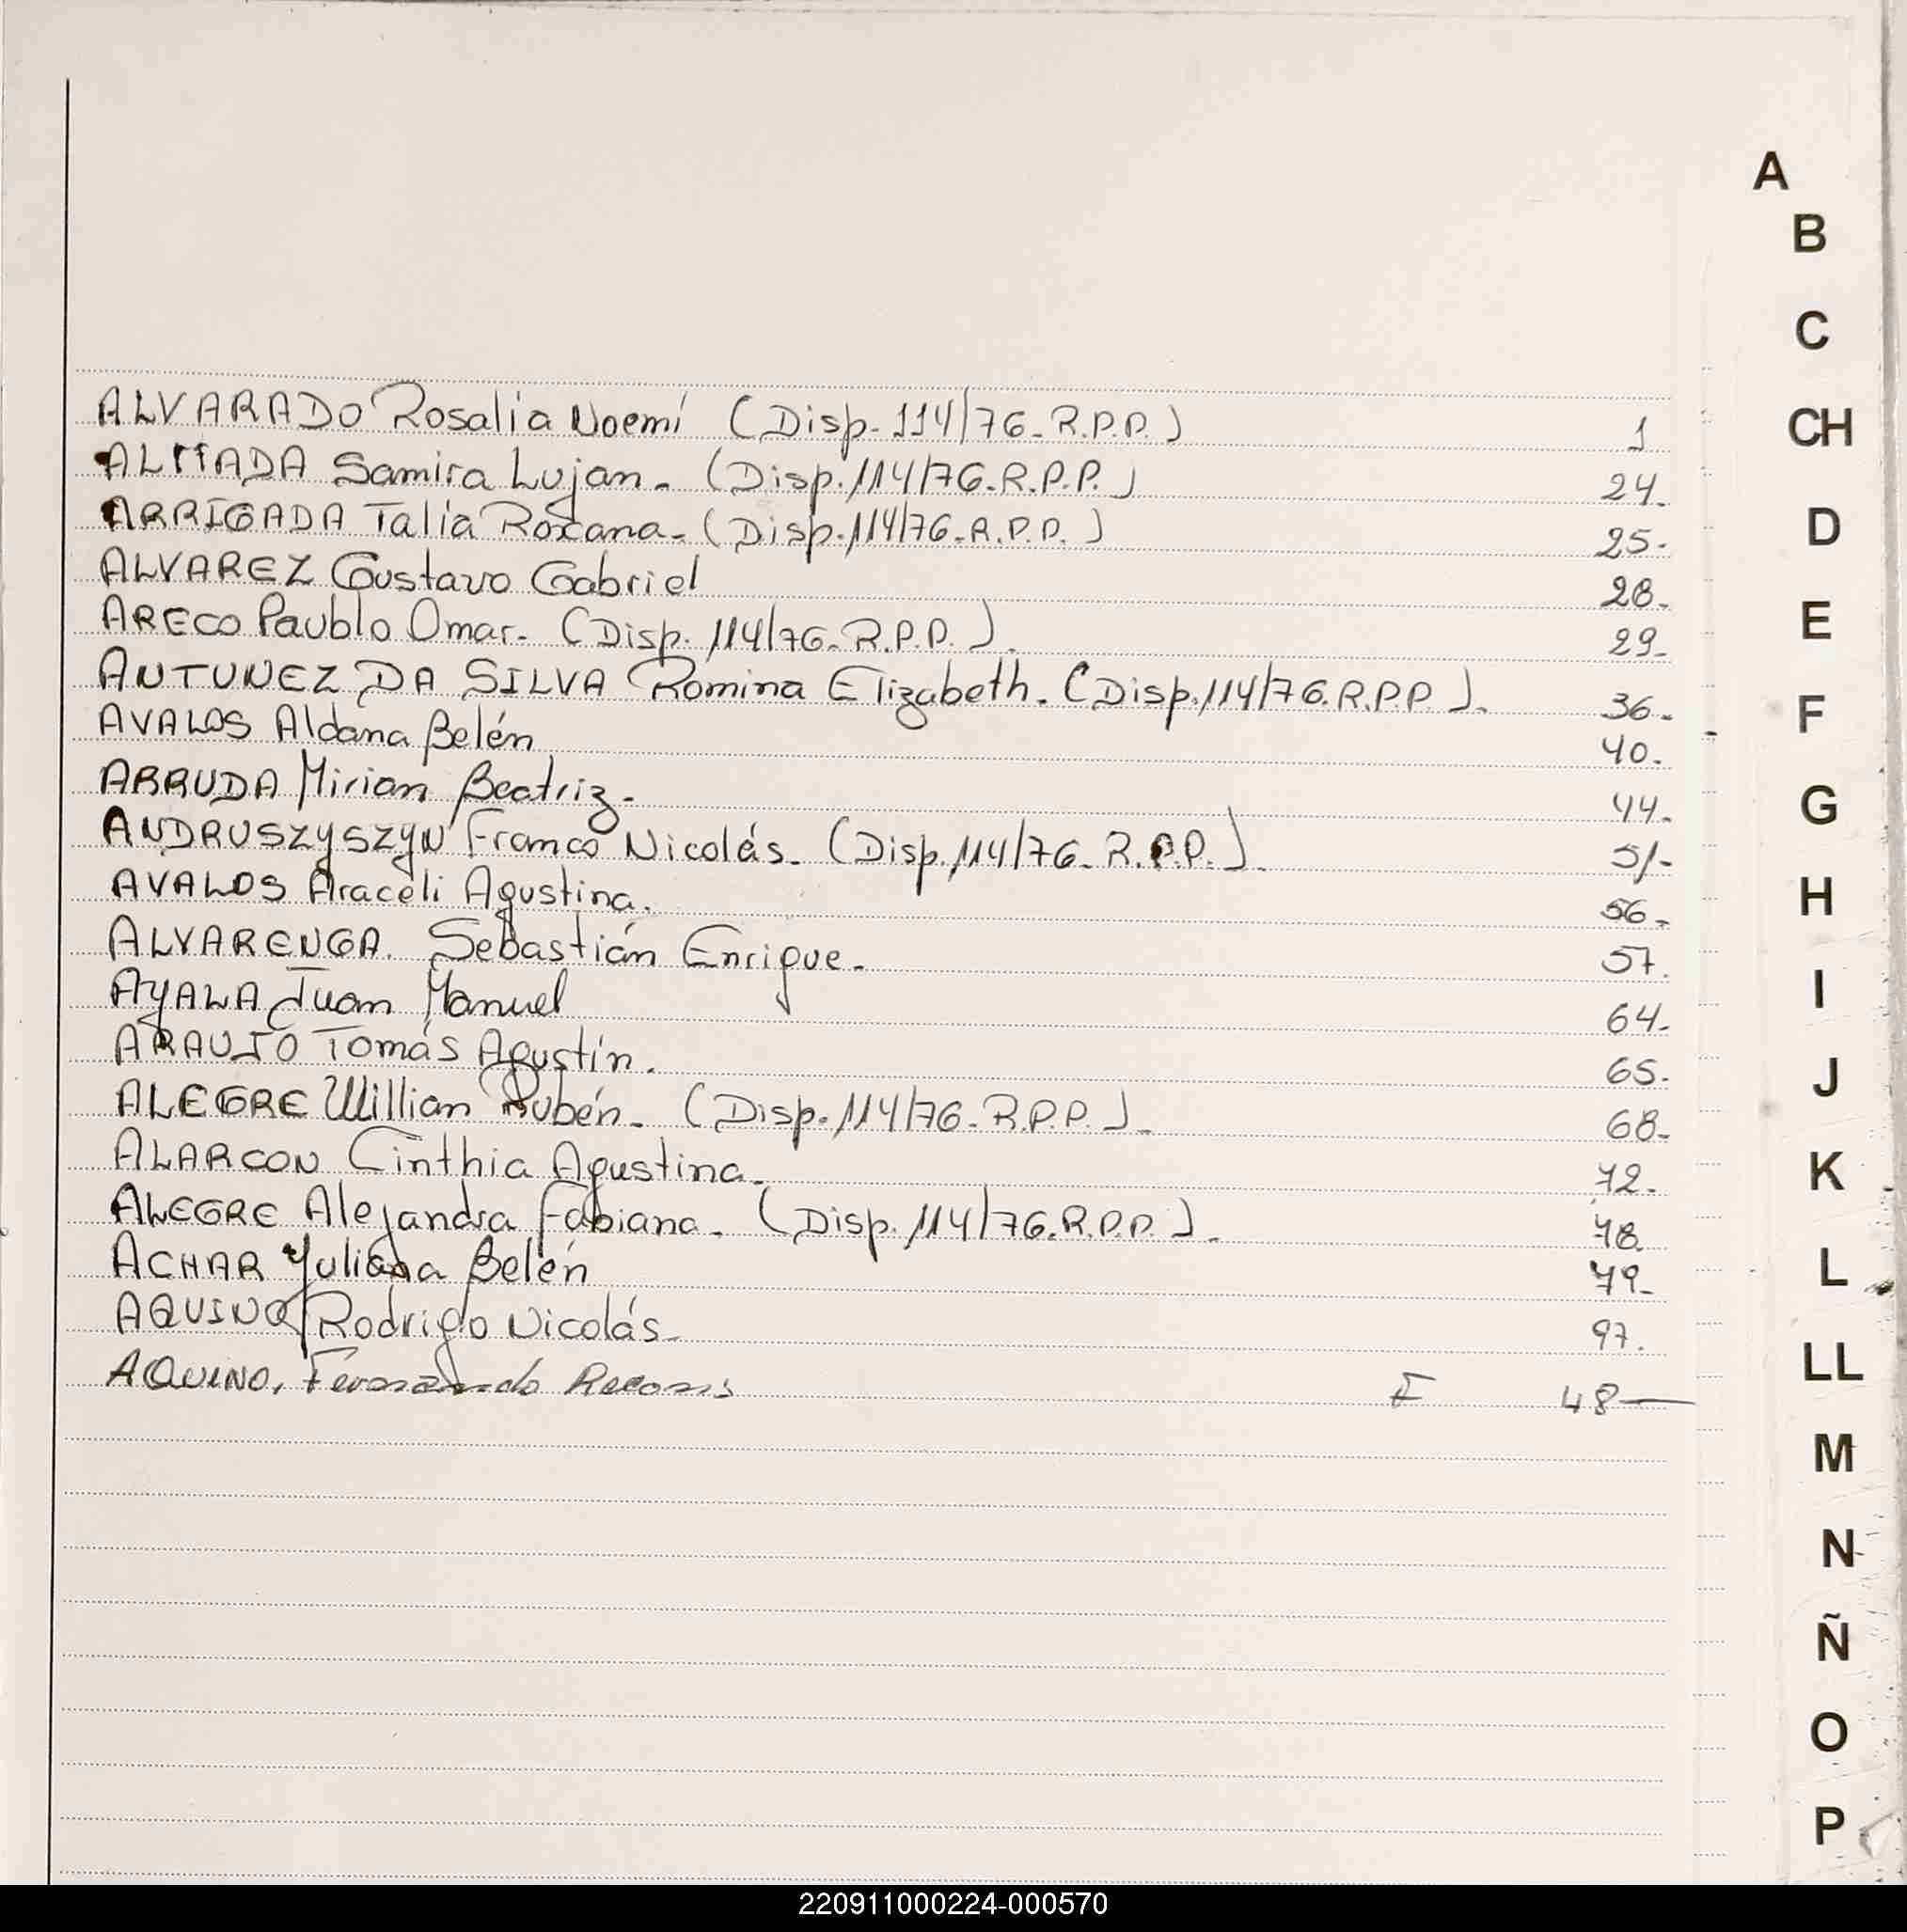 ALVARADO Rosalia Noemí (Disp. 114/76. R.P.P.) 1
ALMADA Samira Lujan. (Disp. 114/76. R.P.P.) 24.
ARRIGADA Talia Roxana. (Disp. 114/76. R.P.P.) 25.
ALVAREZ Gustavo Gabriel 28.
ARECO Paublo Omar. (Disp. 114/76. R.P.P.). 29.
ANTUNEZ DA SILVA Romina Elizabeth. (Disp. 114/76. R.P.P.). 36.
AVALOS Aldana Belén 40.
ARRUDA Mirian Beatriz. 44.
ANDRUSZYSZYN Franco Nicolás. (Disp. 114/76. R.P.P.). 51.
AVALOS Araceli Agustina. 56.
ALVARENGA. Sebastián Enrique. 57.
AYALA Juan Manuel 64.
ARAUJO Tomás Agustín. 65.
ALEGRE Willian Rubén. (Disp. 114/76. R.P.P.). 68.
ALARCON Cinthia Agustina. 72.
ALEGRE Alejandra Fabiana. (Disp. 114/76. R.P.P.). 78.
ACHAR Yuliana Belén 79.
AQUINO Rodrigo Nicolás. 97.
AQUINO, Fernando 48
A
B
C
CH
D
E
F
G
H
I
J
K
L
LL
M
N
Ñ
O
P
220911000224-000570